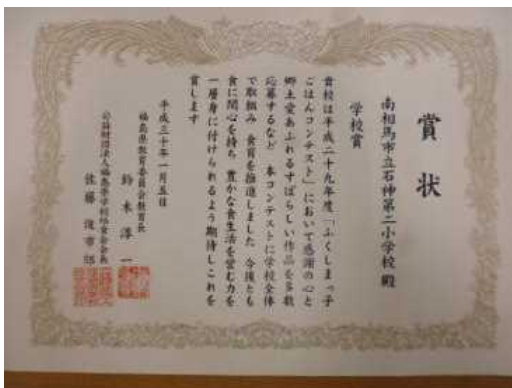 賞状
南相馬市立石神第二小学校殿
学校賞
貴校は平成二十九年度「ふくしまっ子
ごはんコンテスト」において感謝の心と
郷土愛あふれるすばらしい作品を多数
応募するなど 本コンテストに学校全体
で取組み 食育を推進しました 今後とも
食に関心を持ち 豊かな食生活を営む力を
一層身に付けられるよう期待しこれを
賞します
平成三十年一月五日
福島県教育委員会教育長
鈴木淳一
公益財団法人福島県学校給食会会長
佐藤俊市郎